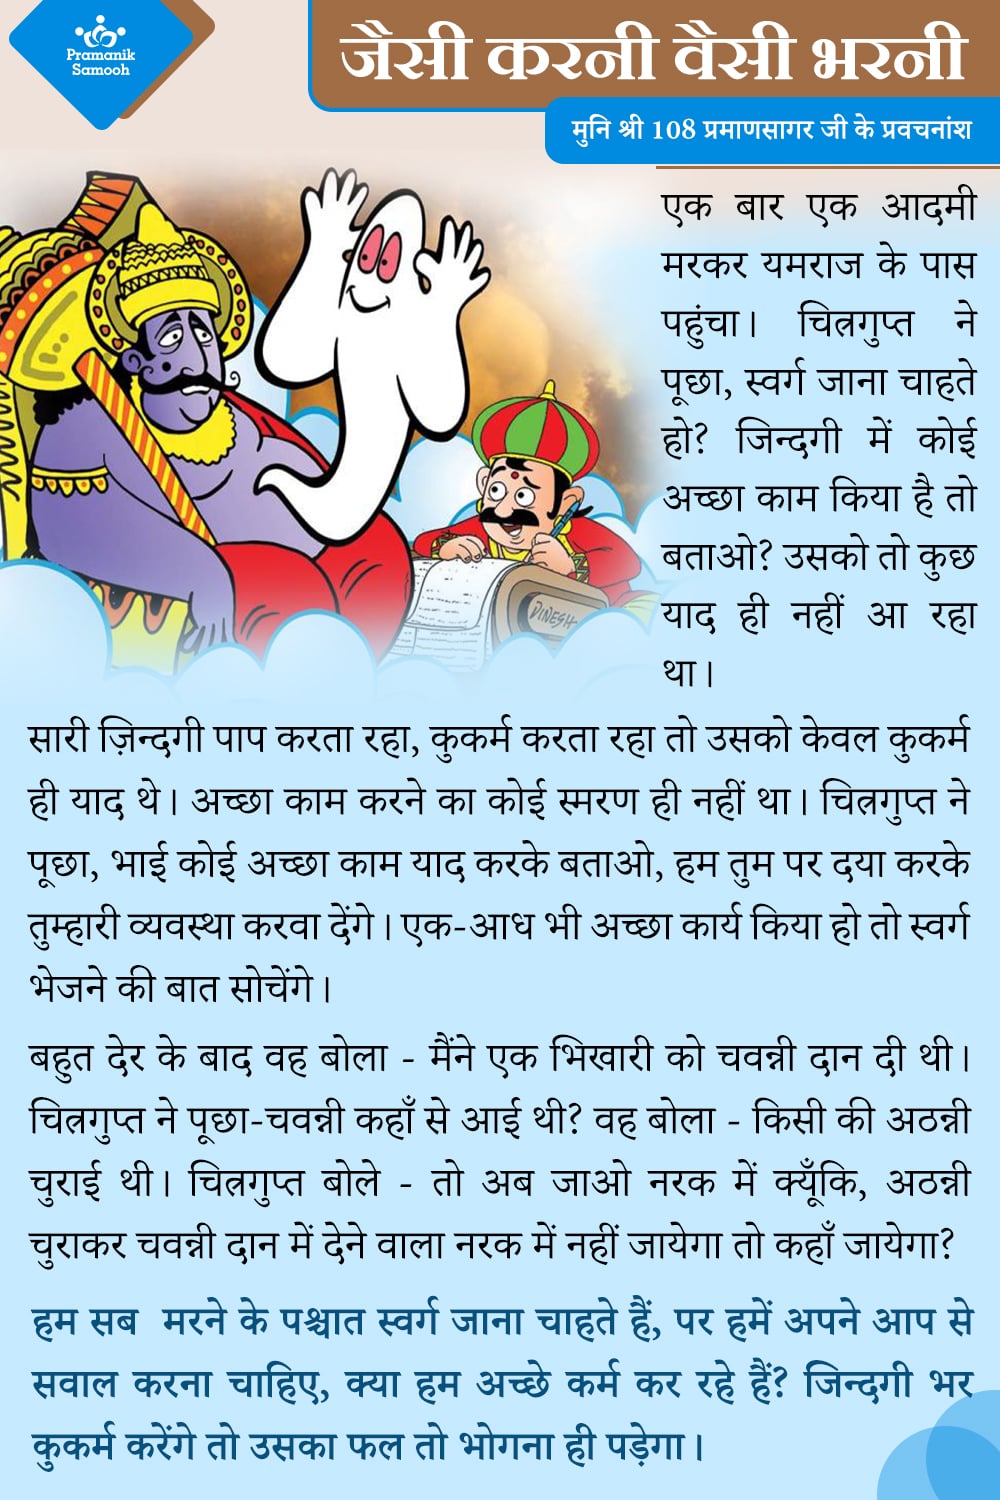 Pramanik
Samooh
जैसी करनी वैसी भरनी
मुनि श्री 108 प्रमाणसागर जी के प्रवचनांश
एक बार एक आदमी
मरकर यमराज के पास
पहुंचा। चित्रगुप्त ने
पूछा, स्वर्ग जाना चाहते
हो? जिन्दगी में कोई
अच्छा काम किया है तो
बताओ? उसको तो कुछ
याद ही नहीं आ रहा
था।
DINESH
सारी ज़िन्दगी पाप करता रहा, कुकर्म करता रहा तो उसको केवल कुकर्म
ही याद थे। अच्छा काम करने का कोई स्मरण ही नहीं था। चित्रगुप्त ने
पूछा, भाई कोई अच्छा काम याद करके बताओ, हम तुम पर दया करके
तुम्हारी व्यवस्था करवा देंगे। एक-आध भी अच्छा कार्य किया हो तो स्वर्ग
भेजने की बात सोचेंगे।
बहुत देर के बाद वह बोला - मैंने एक भिखारी को चवन्नी दान दी थी।
चित्रगुप्त ने पूछा-चवन्नी कहाँ से आई थी? वह बोला - किसी की अठन्नी
चुराई थी। चित्रगुप्त बोले - तो अब जाओ नरक में क्यूँकि, अठन्नी
चुराकर चवन्नी दान में देने वाला नरक में नहीं जायेगा तो कहाँ जायेगा?
हम सब मरने के पश्चात स्वर्ग जाना चाहते हैं, पर हमें अपने आप से
सवाल करना चाहिए, क्या हम अच्छे कर्म कर रहे हैं? जिन्दगी भर
कुकर्म करेंगे तो उसका फल तो भोगना ही पड़ेगा।